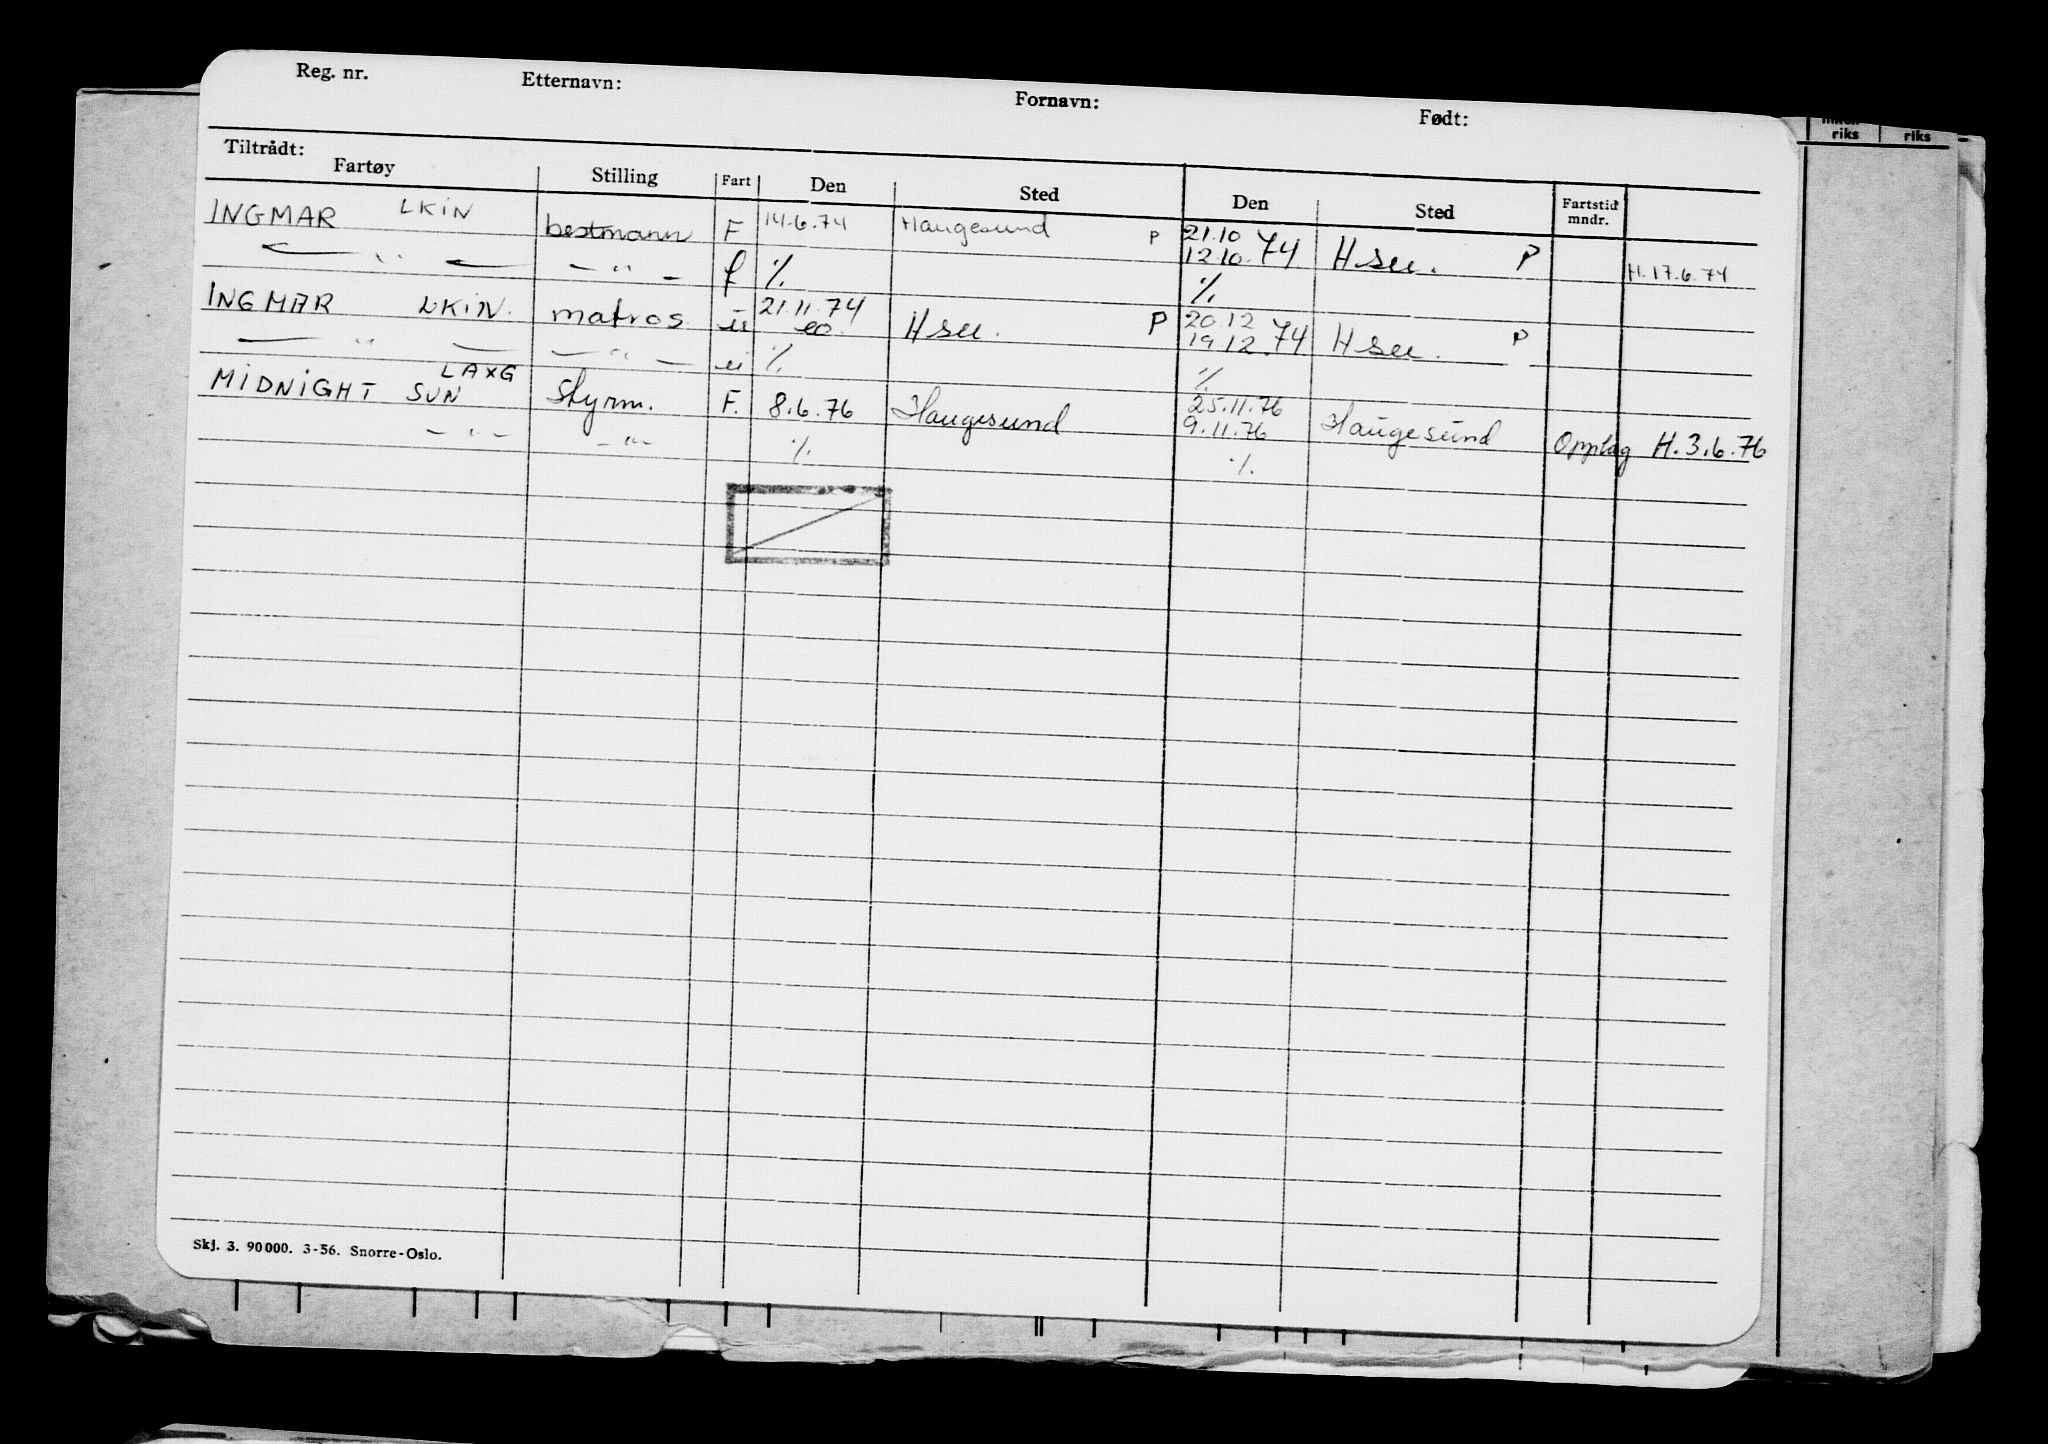 Reg. nr. Etternavn: Fornavn: Født:
riks riks
Tiltrådt:
Fartøy Stilling Fart Den Sted Den Sted Fartstid mndr.
INGMAR LKIN bestmann F 14.6.74 Haugesund P 21.10 12.10. 74 H.su. P
— " — - " - f % % H. 17.6.74
INGMAR LKIN. matros is 21.11.74 H su. P 20.12 19.12. 74 H su. P
— " — — " — ei % %
MIDNIGHT SUN LAXG Styrm. F. 8.6.76 Haugesund 25.11.76 9.11.76 Haugesund Opplag H. 3.6.76
- " - - " - % %
Skj. 3. 90000. 3-56. Snorre-Oslo.